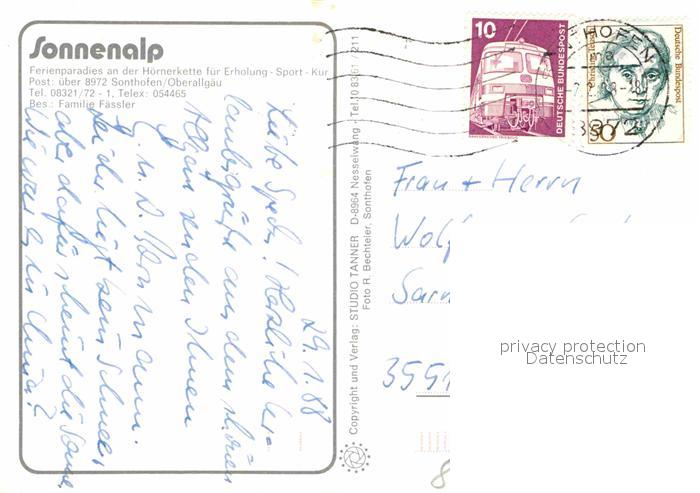 Sonnenalp
Ferienparadies an der Hörnerkette für Erholung · Sport · Kur
Post: über 8972 Sonthofen/Oberallgäu
Tel. 08321/72 - 1, Telex: 054465
Bes.: Familie Fässler
29.1.88
Liebe Specks! Herzliche Ur-
laubsgrüße aus dem schönen
Allgäu senden Ihnen
G. u. D. Bornmann.
Leider liegt kein Schnee,
aber dafür scheint die Sonne
Wie war es in China?
Copyright und Verlag: STUDIO TANNER D-8964 Nesselwang · Tel. 0 83 61 / 211
Foto R. Bechteler, Sonthofen
10
DEUTSCHE BUNDESPOST
Deutsche Bundespost
50
HOFEN
8972
Frau + Herrn
Wol
Sar
3551
privacy protection
Datenschutz
8